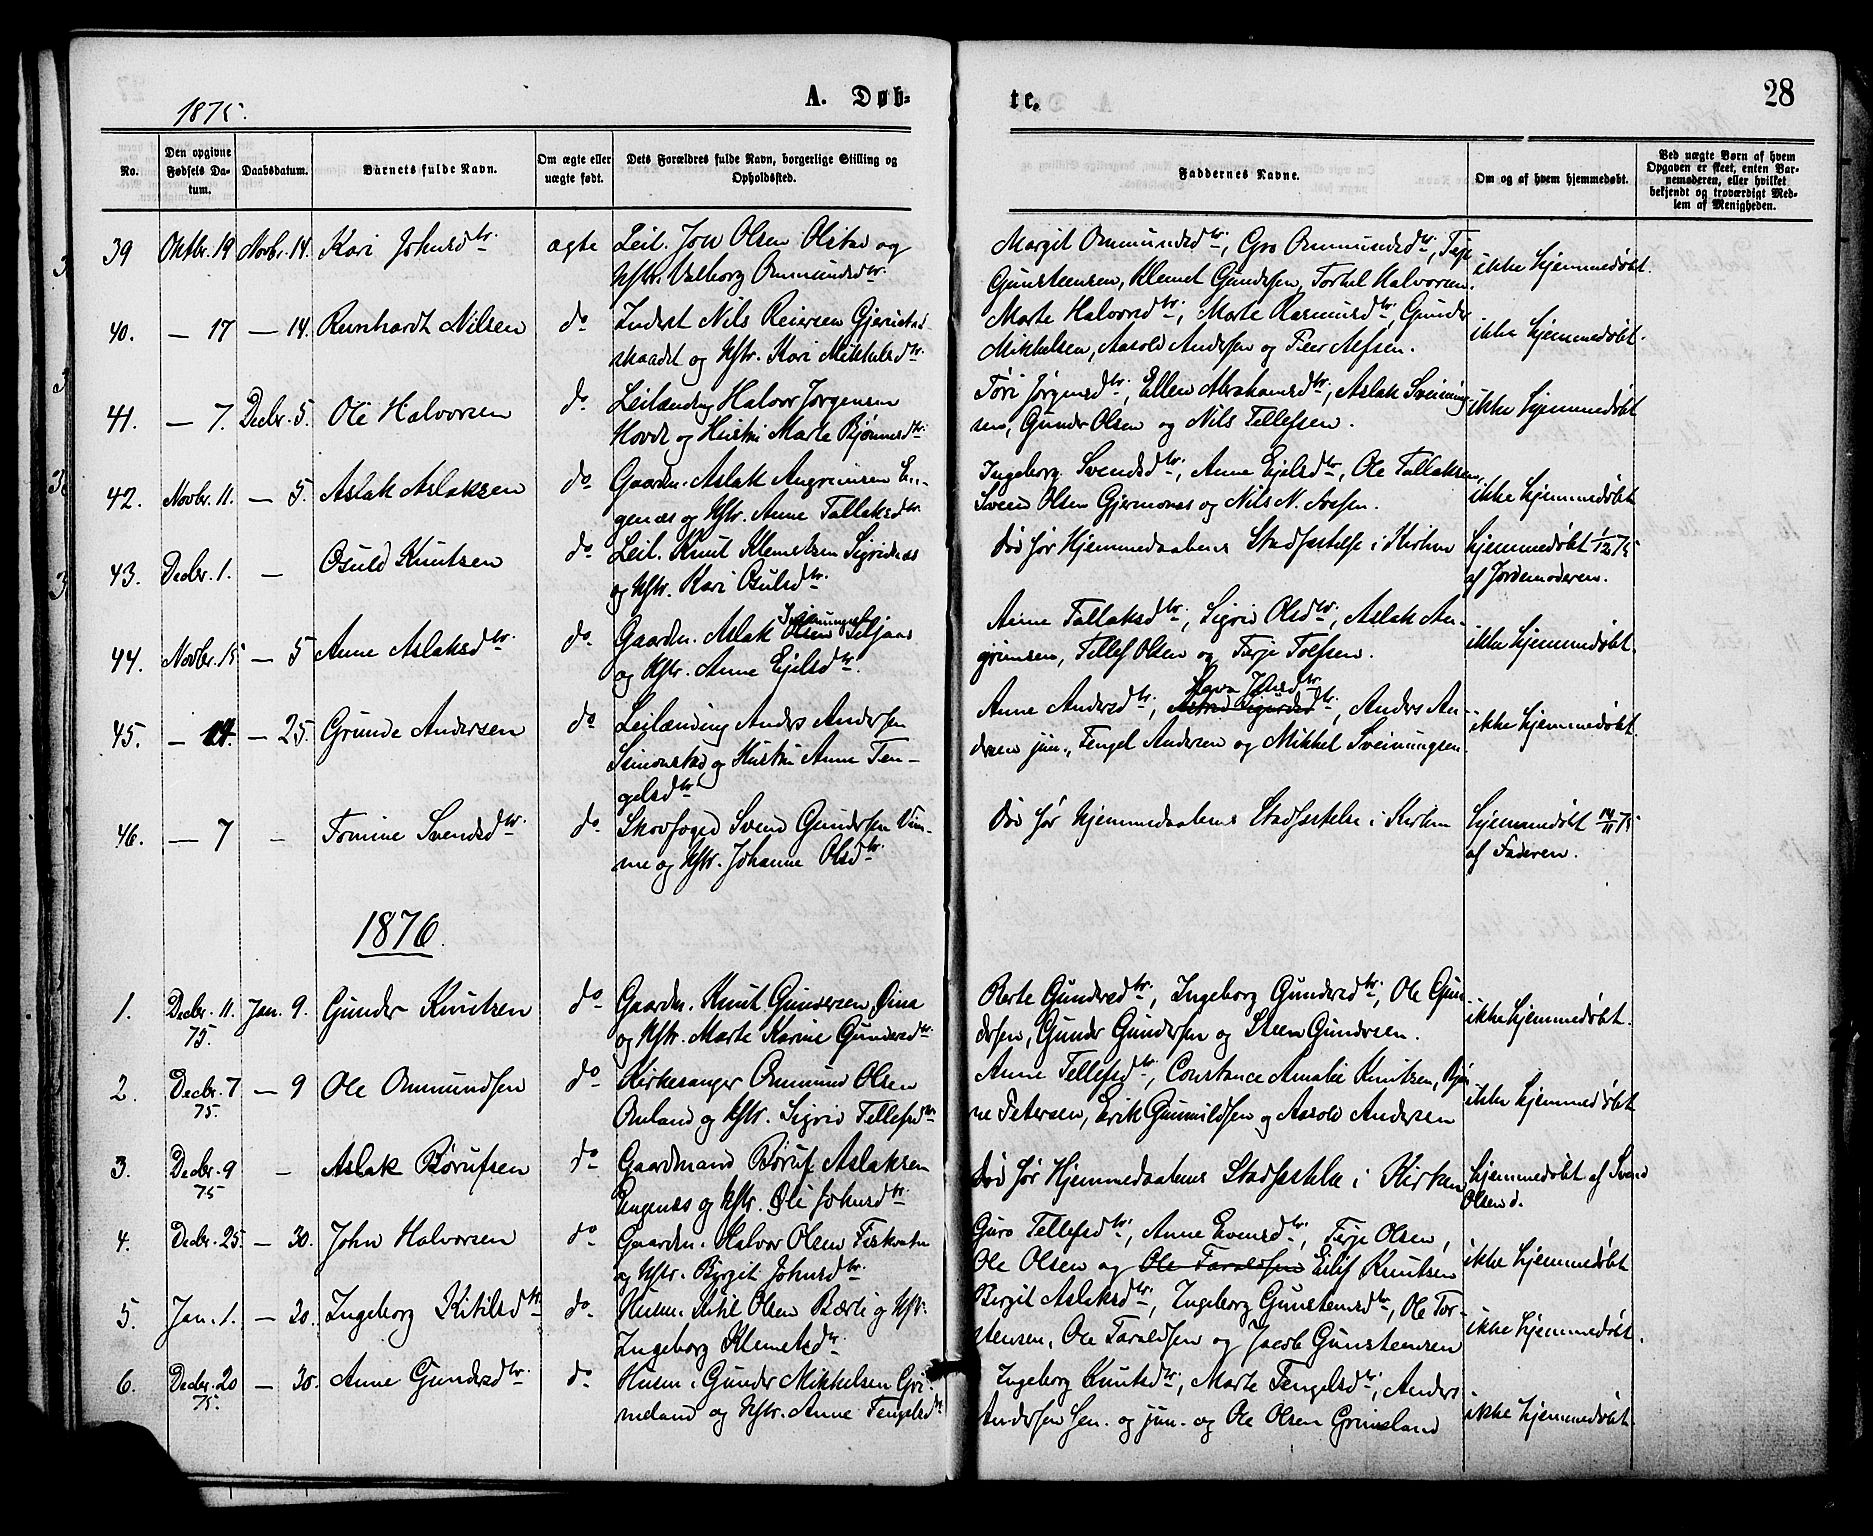 1875.
A. Døb-
te.
28
No.
Den opgivne Fødsels Datum.
Daabsdatum.
Barnets fulde Navn.
Om ægte eller uægte født.
Dets Forældres fulde Navn, borgerlige Stilling og Opholdssted.
Faddernes Navne.
Om og af hvem hjemmedøbt.
Ved uægte Børn af hvem Opgaven er skeet, enten Barnemoderen, eller hvilket bekjendt og troværdigt Medlem af Menigheden.
39 Oktbr. 19 Novbr. 14. Kari Johnsdtr. ægte Leil. Jon Olsen Olstad og
Hstr. Valborg Ommundsdtr.
Margit Ommundsdtr., Gro Ommundsdtr., Terje
Gunsteensen, Klemet Gundersen, Torkel Halvorsen.
ikke hjemmedøbt.
40. — 17 — 14. Reinhardt Nilsen do Inderst Nils Reiersen
og Hstr. Kari Mikkelsdtr.
Marte Halvorsdtr., Marte Rasmusdtr., Gunder
Mikkelsen, Aasold Andersen og Peer
ikke hjemmedøbt.
41. — 7. Decbr. 5. Ole Halvorsen do Leilænding Halvor Jørgensen
Hovde og Hustru Marte Bjønnesdtr.
Tøri Jørgensdtr., Ellen Abrahamsdtr., Aslak Sveinung-
sen, Gunder Olsen og Nils Tellefsen.
ikke hjemmedøbt
42. Novbr. 11. — 5. Aslak Aslaksen do Gaardm. Aslak Angrimsen En-
genæs og Hstr. Anne Tallaksdtr.
Ingeborg Svendsdtr., Anne Ejelsdtr., Ole Tallaksen,
Svend Olsen Gjermones og Nils N.
ikke hjemmedøbt
43. Decbr. 1. — Osuld Knutsen do Leil. Knut Klemetsen Sigridnæs
og Hstr. Kari Osulsdtr.
Død før Hjemmedaabens Stadfæstelse i Kirken
hjemmedøbt 1/12 75
af Jordemoderen.
44. Novbr. 15 — 5 Anne Aslaksdtr. do Gaardm. Aslak Olsen Seljaas
og Hstr. Anne Ejelsdtr.
Anne Tallaksdtr., Sigrid Olsdtr., Aslak An-
grimsen, Tellef Olsen og Terje Tolfsen.
ikke hjemmedøbt.
45. — 14. — 25. Grunde Andersen do Leilænding Anders Andersen
Simonstad og Hustru Anne Ten-
gelsdtr.
Anne Andersdtr., Anders An-
dersen jun., Tengel Andersen og Mikkel Sveinungsen
ikke hjemmedøbt.
46. — 7 — Tomine Svendsdtr. do Skovfoged Svend Gundersen Vim-
me og Hstr. Johanne Olsdtr.
Død før Hjemmedaabens Stadfæstelse i Kirken
hjemmedøbt 14/11 75
af Faderen.
1876.
1. Decbr. 11. 75. Jan. 9. Gunder Knutsen do Gaardm. Knut Gundersen
og Hstr. Marte Karine Gundersdtr.
Berte Gundersdtr., Ingeborg Gundersdtr., Ole Gun-
dersen, Gunder Gundersen og Steen Gundersen.
ikke hjemmedøbt.
2. Decbr. 7 75 — 9 Ole Ommundsen do Kirkesanger Ommund Olsen
Omland og Hstr. Sigrid Tellefsdtr.
Anne Tellefsdtr., Constance Amalie Knutsen, Bjøn-
ne Petersen, Erik Gunnildsen og Aasold Andersen
ikke hjemmedøbt
3. Decbr. 9 75 — Aslak Børufsen do Gaardmand Børuf Aslaksen
Engenæs og Hstr. Oli Johnsdtr.
Død før Hjemmedaabens Stadfæstelse i Kirken
hjemmedøbt af Svend
Olsen d.
4. Decbr. 25. — 30. John Halvorsen do Gaardm. Halvor Olsen Fiskvatn
og Hstr. Birgit Johnsdtr.
Guro Tellefsdtr., Anne Evensdtr., Terje Olsen,
Ole Olsen og Ole Taraldsen Eilif Knutsen
ikke hjemmedøbt
5. Jan. 1. — 30. Ingeborg Kitilsdtr do Husm. Kitil Olsen Bærli og Hstr.
Ingeborg Klemetsdtr.
Birgit Aslaksdtr., Ingeborg Gunstensdtr., Ole Tor-
stensen, Ole Taraldsen og Jacob Gunsteensen
ikke hjemmedøbt.
6. Decbr. 20 75. — 30. Anne Gundersdtr. do Husm. Gunder Mikkelsen Gri-
meland og Hstr. Anne Tengelsdtr
Ingeborg Knutsdtr., Marte Tengelsdtr., Anders
Andersen sen. og jun. og Ole Olsen Grimeland
ikke hjemmedøbt.